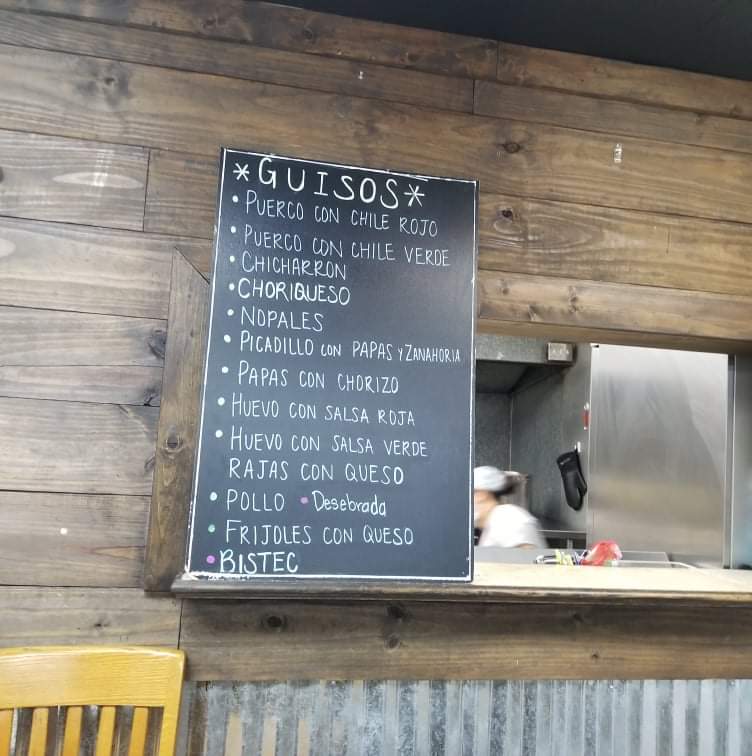 *GUISOS*
• PUERCO CON CHILE ROJO
• PUERCO CON CHILE VERDE
• CHICHARRON
• CHORIQUESO
• NOPALES
• PICADILLO CON PAPAS Y ZANAHORIA
• PAPAS CON CHORIZO
• HUEVO CON SALSA ROJA
• HUEVO CON SALSA VERDE
RAJAS CON QUESO
• POLLO • Desebrada
• FRIJOLES CON QUESO
• BISTEC